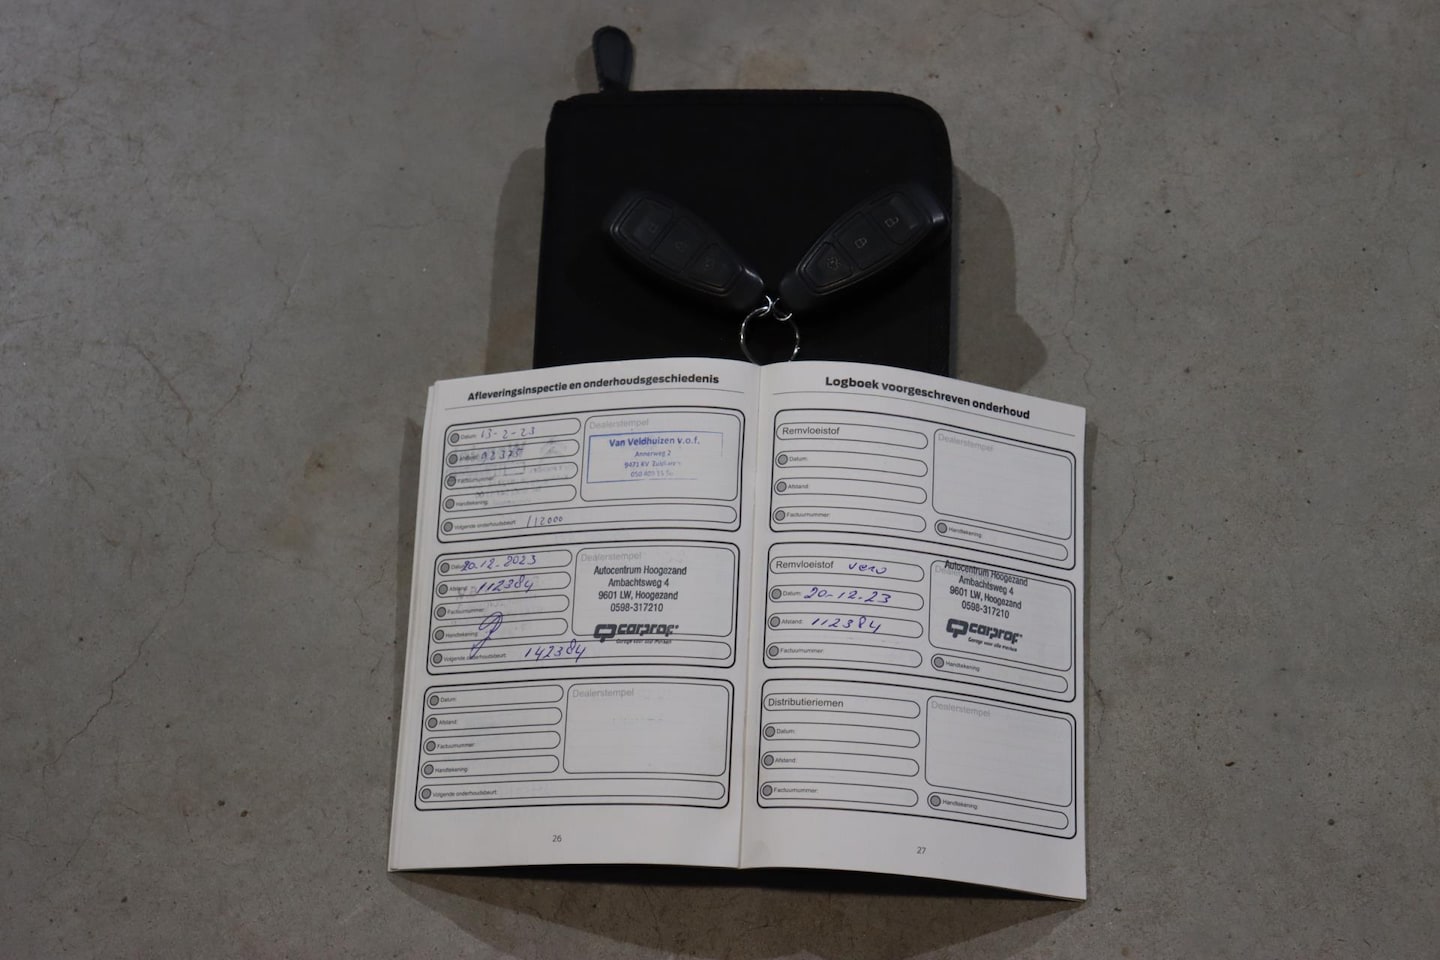 Afleveringsinspectie en onderhoudsgeschiedenis
Datum: 13-2-23
Afstand: 92373
Factuurnummer:
Handtekening:
Volgende onderhoudsbeurt: 112000
Dealerstempel
Van Veldhuizen v.o.f.
Annerweg 2
9471 KV
Datum: 20.12.2023
Afstand: 112384
Factuurnummer:
Handtekening:
Volgende onderhoudsbeurt: 142384
Dealerstempel
Autocentrum Hoogezand
Ambachtsweg 4
9601 LW, Hoogezand
0598-317210
carprof
Garage voor alle merken
Datum:
Afstand:
Factuurnummer:
Handtekening:
Volgende onderhoudsbeurt:
Dealerstempel
26
Logboek voorgeschreven onderhoud
Remvloeistof
Datum:
Afstand:
Factuurnummer:
Dealerstempel
Handtekening:
Remvloeistof verv
Datum: 20-12-23
Afstand: 112384
Factuurnummer:
Autocentrum Hoogezand
Ambachtsweg 4
9601 LW, Hoogezand
0598-317210
carprof
Garage voor alle merken
Handtekening:
Distributieriemen
Datum:
Afstand:
Factuurnummer:
Dealerstempel
Handtekening:
27